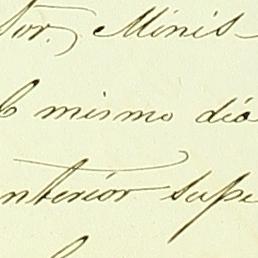 tor. Minis-
l mismo dia
nterior supe